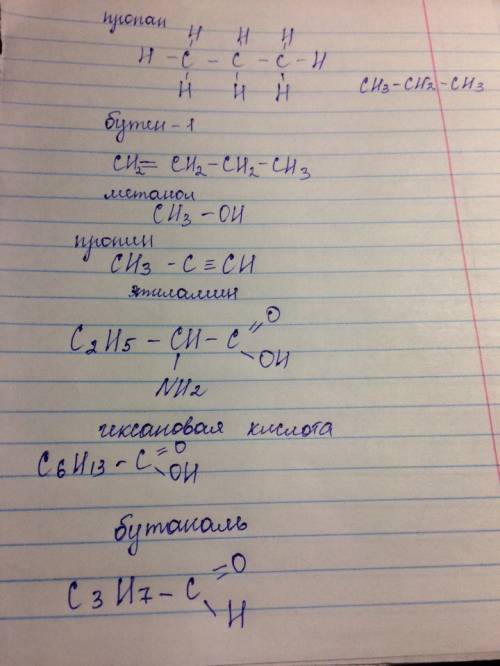 пропан
H H H
H - C - C - C - H
H H H
CH3-CH2-CH3
бутен-1
CH2= CH2-CH2-CH3
метанол
CH3 - OH
пропин
CH3 - C ≡ CH
этиламин
C2H5 - CH - C =O
OH
NH2
гексановая кислота
C6H13 - C =O
OH
бутаналь
C3H7 - C =O
H